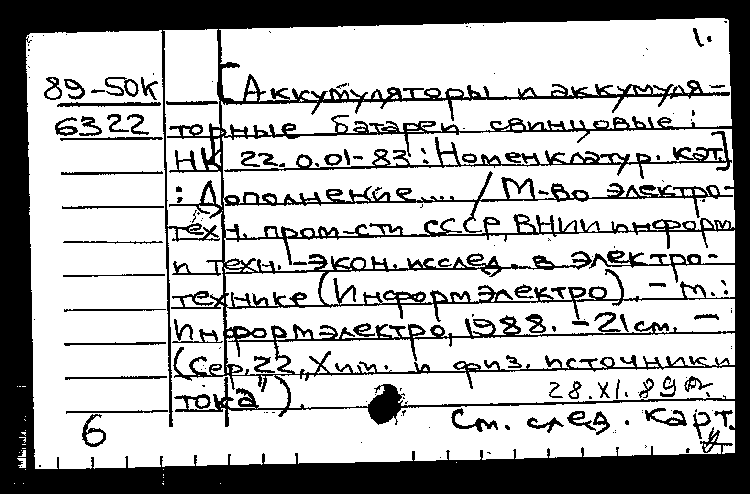 1.
89-50к [Аккумуляторы и аккумуля-
6322 торные батареи свинцовые:
НК 22.0.01-83: Номенклатур. кат.]
: Дополнение... / М-во электро-
техн. пром-сти СССР, ВНИИ информ
и техн.-экон. исслед. в электро-
технике (Информэлектро). - М.:
Информэлектро, 1988. - 21 см. -
(Сер. 22, „Хим. и физ. источники
тока").
28.XI.89
6 См. след. карт.